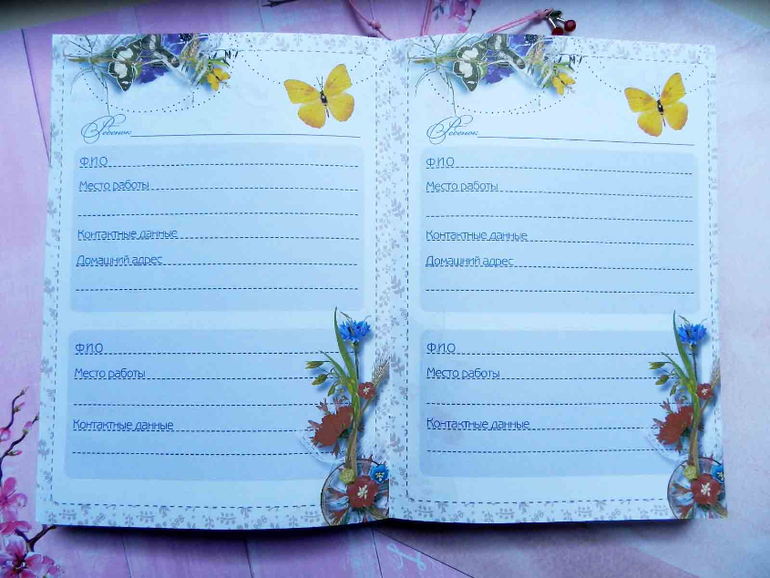 Ребенок
Ф.И.О
Место работы
Контактные данные
Домашний адрес
Ф.И.О
Место работы
Контактные данные
Ребенок
Ф.И.О
Место работы
Контактные данные
Домашний адрес
Ф.И.О
Место работы
Контактные данные